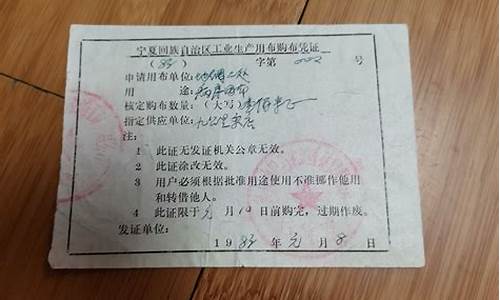 宁夏回族自治区工业生产用布购布凭证
(83) 字第 号
申请用布单位:
用 途:
核定购布数量:(大写)
指定供应单位:九公里
注:
1 此证无发证机关公章无效。
2 此证涂改无效。
3 用户必须根据批准用途使用不准挪作他用
和转借他人。
4 此证限于元月10日前购完,过期作废。
发证单位:
1983年元月8日